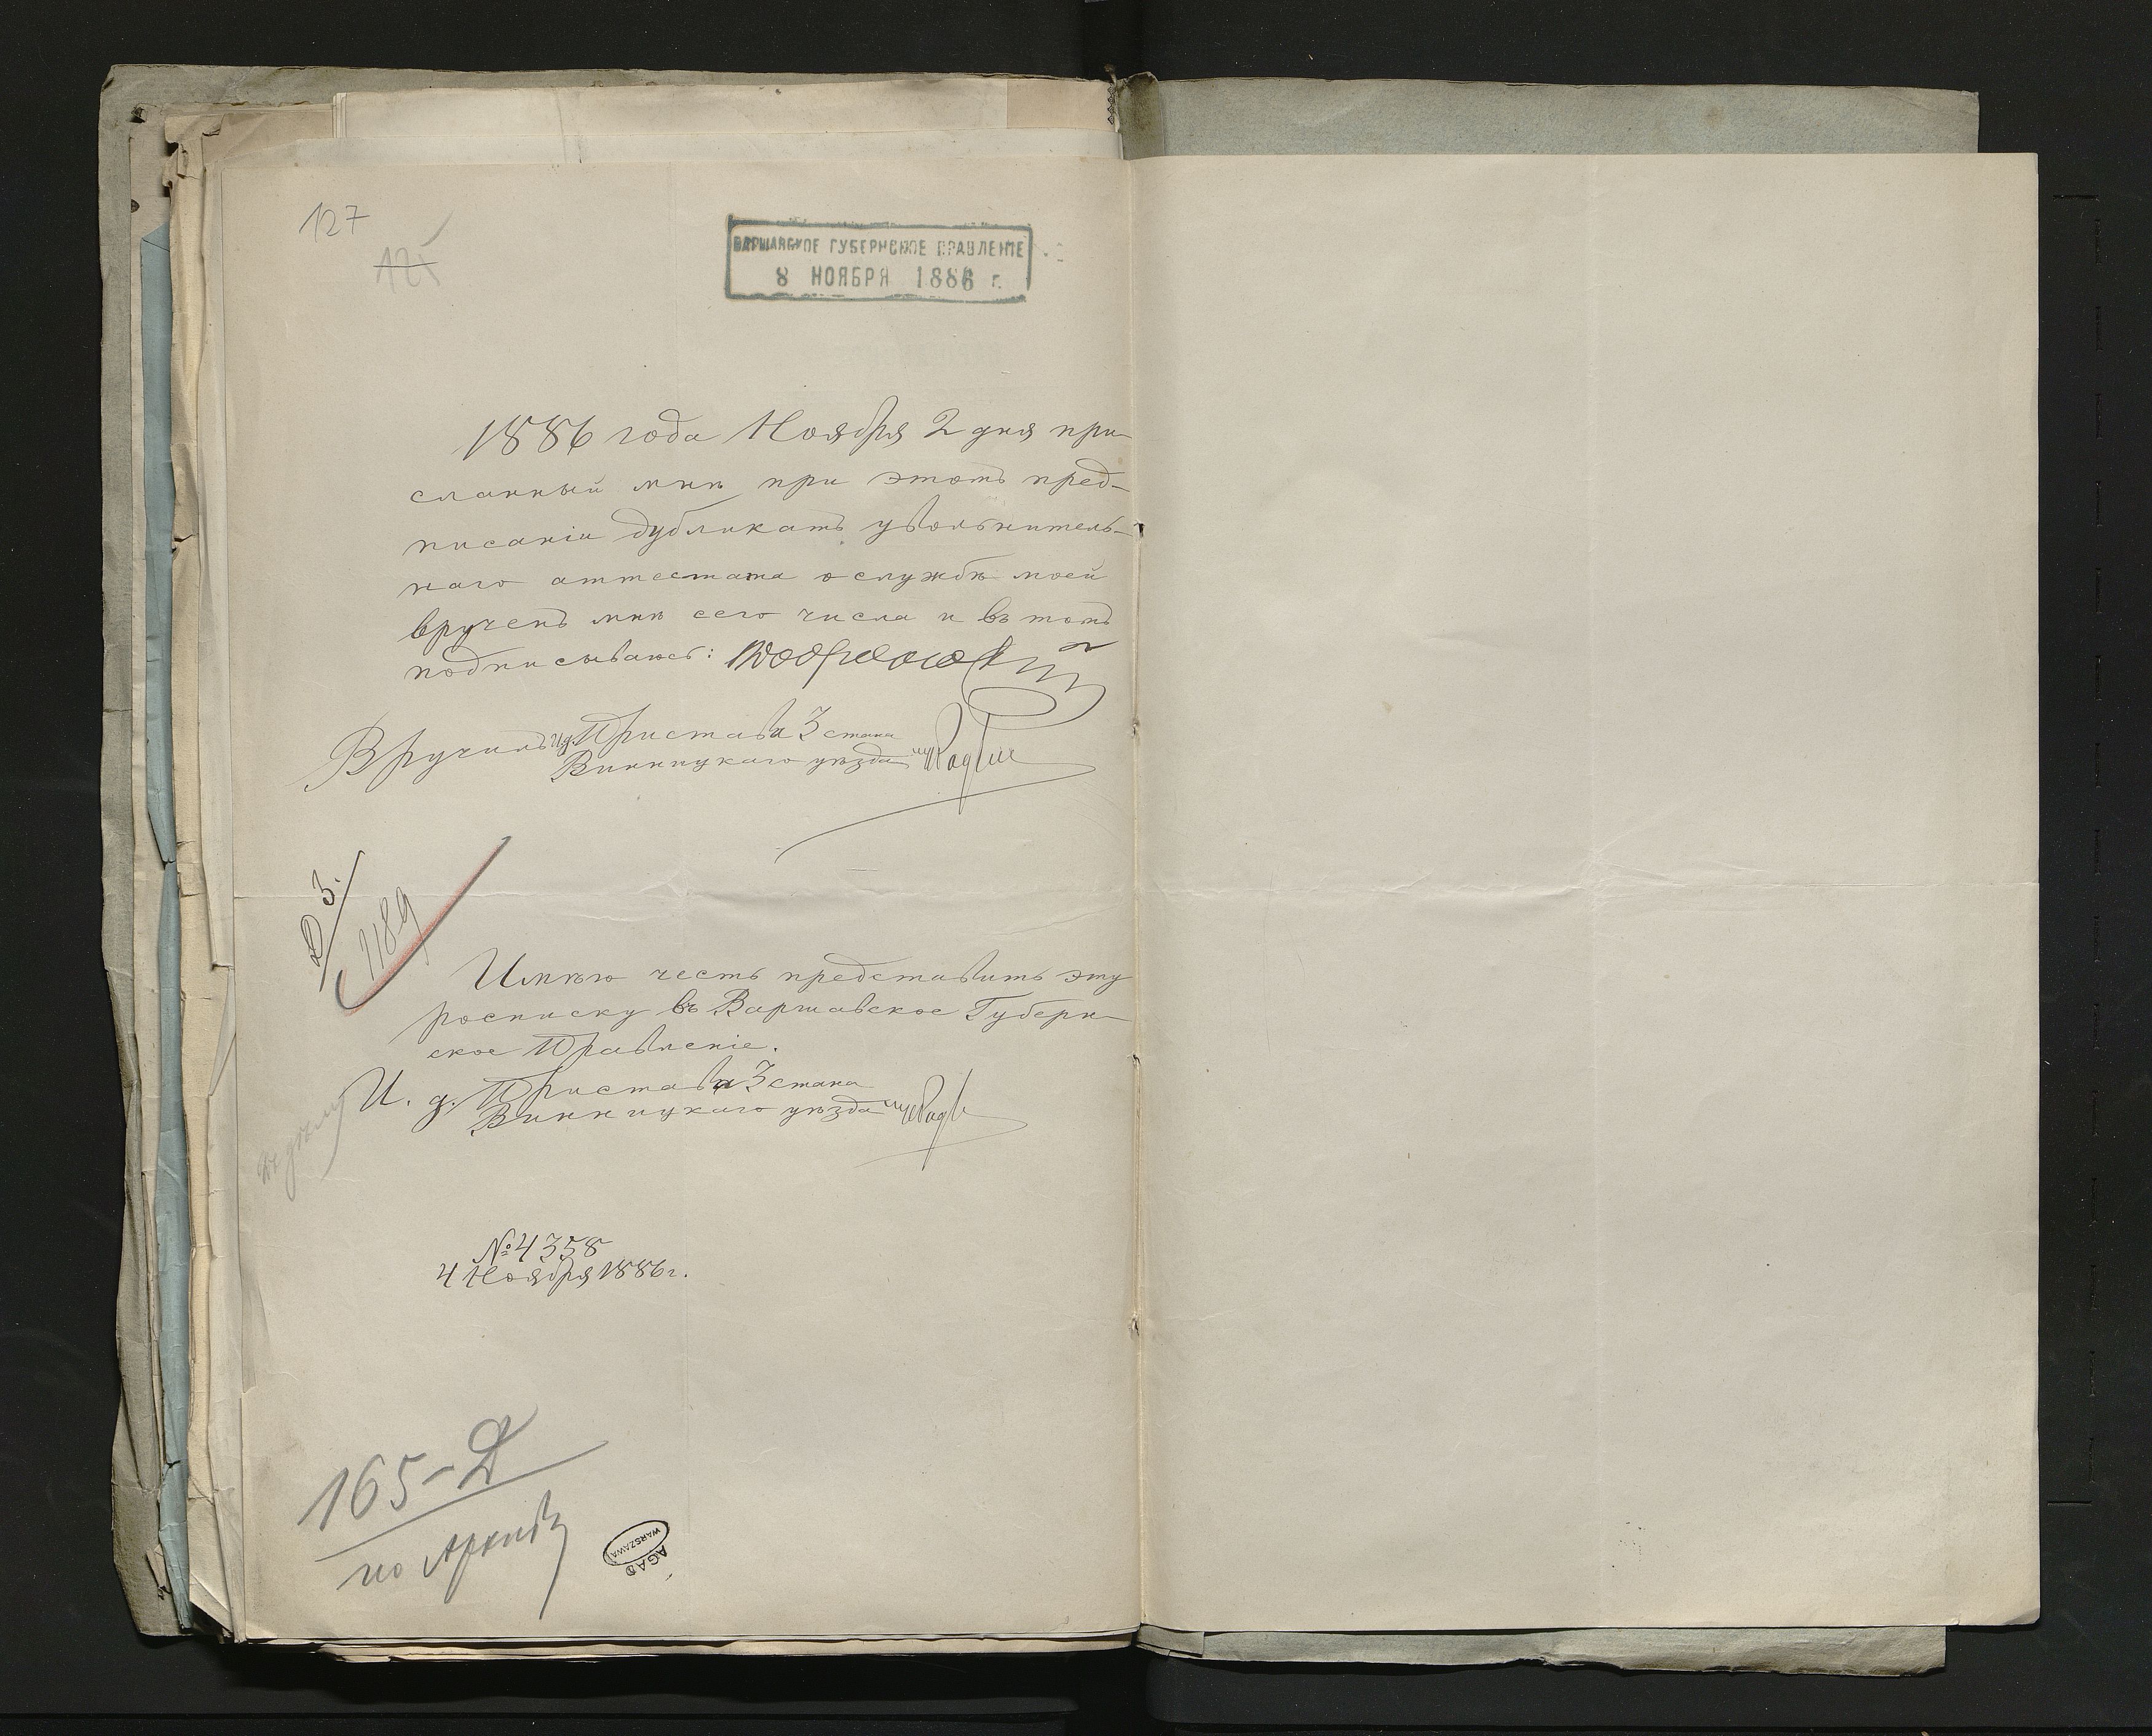 127
125
ВАРШАВСКОЕ ГУБЕРНСКОЕ ПРАВЛЕНІЕ
8 НОЯБРЯ 1886 г.
1886 года Ноября 2 дня при-
сланный мнѣ при этомъ пред-
писаніи дубликатъ увольнитель-
наго аттестата о службѣ моей
врученъ мнѣ сего числа и въ томъ
подписываюсь:
Вручилъ И. д. Пристава 3 стана
Винницкаго уѣзда
Д 3.
1189
Имѣю честь представить эту
росписку въ Варшавское Губерн-
ское Правленіе.
И. д. Пристава 3 стана
Винницкаго уѣзда
къ дѣлу
№ 4358
4 Ноября 1886 г.
165-Д
по Архиву
AGAD
WARSZAWA